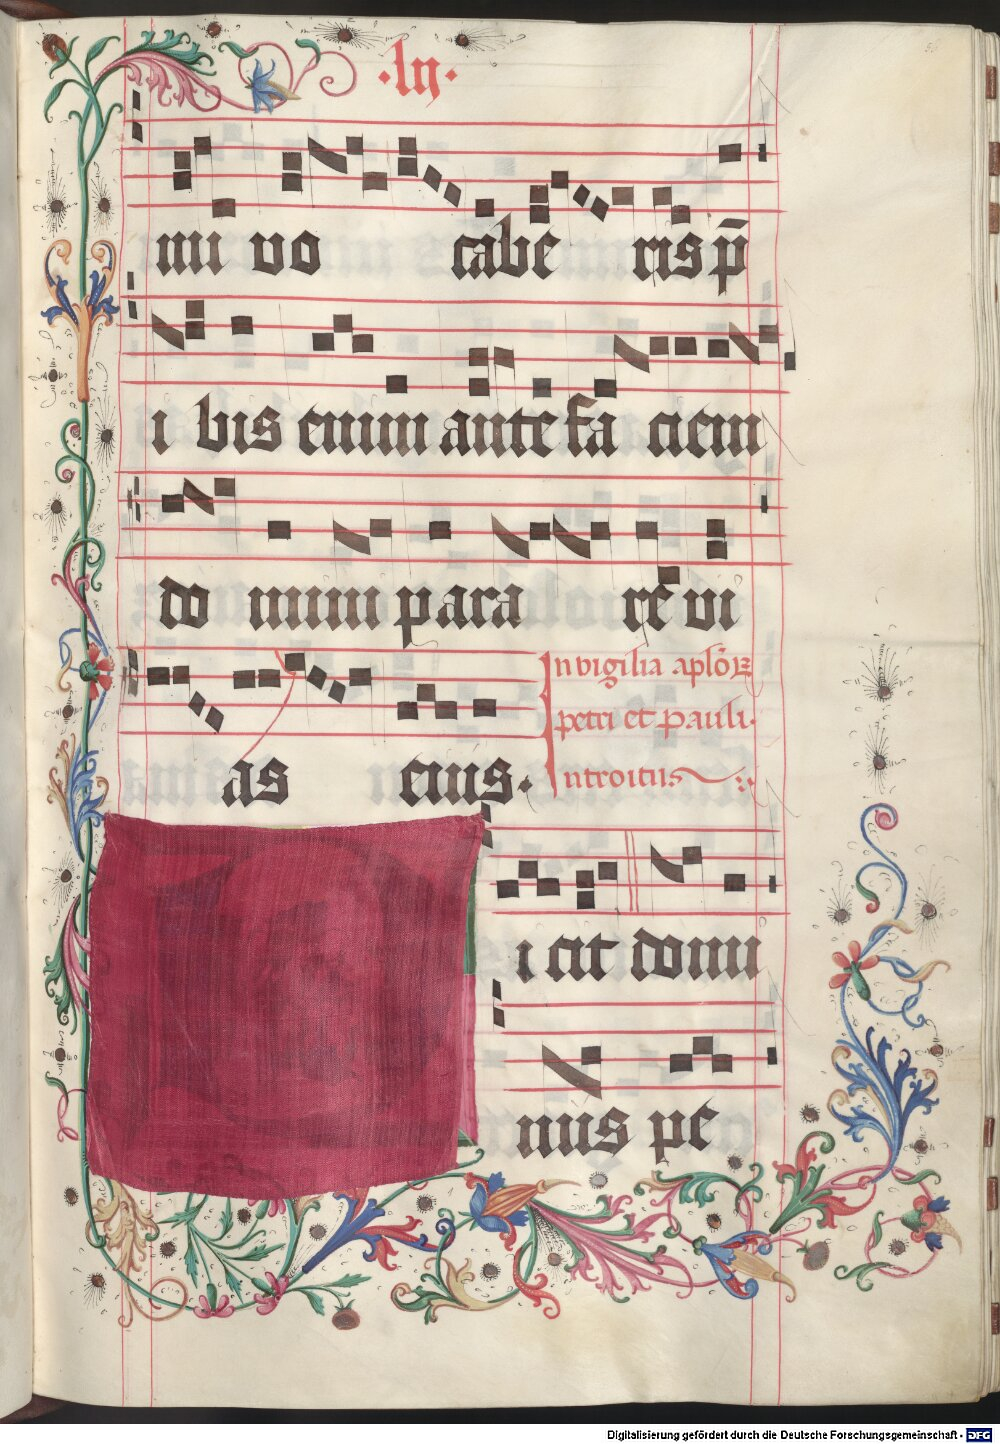 ·lıȷ·
mi vo cabe͂ ris p̄
i bis enim ante fa ciem
do mini para re͂ vi
as eius.
In vigilia apl̄oꝝ
petri et Pauli.
Introitus
i cit domi
nus pe
Digitalisierung gefördert durch die Deutsche Forschungsgemeinschaft - DFG